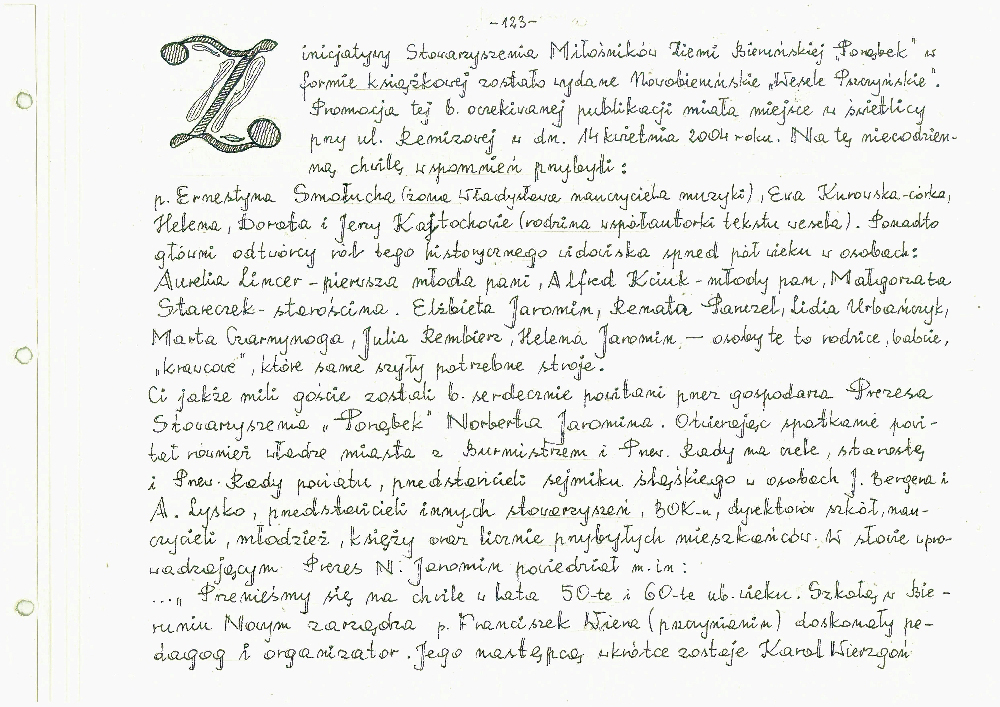 -123-
Z inicjatywy Stowarzyszenia Miłośników Ziemi Bieruńskiej „Porąbek" w
formie książkowej zostało wydane Nowobieruńskie „Wesele Pszczyńskie".
Promocja tej b. oczekiwanej publikacji miała miejsce w świetlicy
przy ul. Remizowej w dn. 14 kwietnia 2004 roku. Na tę niecodzien-
ną chwilę wspomnień przybyli:
p. Ernestyna Smołucha (żona Władysława nauczyciela muzyki), Ewa Kurowska-córka,
Helena, Dorota i Jerzy Kajtochowie (rodzina współautorki tekstu wesela). Ponadto
główni odtwórcy ról tego historycznego widowiska sprzed pół wieku w osobach:
Aurelia Lincer - pierwsza młoda pani, Alfred Kciuk - młody pan, Małgorzata
Stareczek - starościna. Elżbieta Jaromin, Renata Panczel, Lidia Urbańczyk,
Marta Czarnynoga, Julia Rembierz, Helena Jaromin, — osoby te to rodzice, babcie,
„krawcowe", które same szyły potrzebne stroje.
Ci jakże mili goście zostali b. serdecznie powitani przez gospodarza Prezesa
Stowarzyszenia „Porąbek" Norberta Jaromina. Otwierając spotkanie powi-
tał również władze miasta z Burmistrzem i Przew. Rady na czele, starostę
i Przew. Rady powiatu, przedstawicieli sejmiku śląskiego w osobach J. Bergera i
A. Lysko, przedstawicieli innych stowarzyszeń, BOK-u, dyrektorów szkół, nau-
czycieli, młodzież, księży oraz licznie przybyłych mieszkańców. W słowie wpro-
wadzającym Prezes N. Jaromin powiedział m.in:
...„ Przenieśmy się na chwilę w lata 50-te i 60-te ub. wieku. Szkołą w Bie-
runiu Nowym zarządza p. Franciszek Wiera (pszczynianin) doskonały pe-
dagog i organizator. Jego następcą wkrótce zostaje Karol Wierzgoń